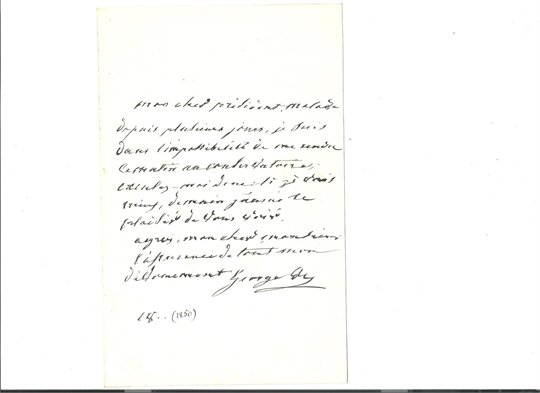 mon cher président, malade
depuis plusieurs jours, je suis
dans l'impossibilité de me rendre
ce matin au conservatoire,
excusez-moi donc. si je vais
mieux, demain j'aurai le
plaisir de vous voir.
agréez, mon cher
l'assurance de tout mon
dévouement George
18.. (1850)